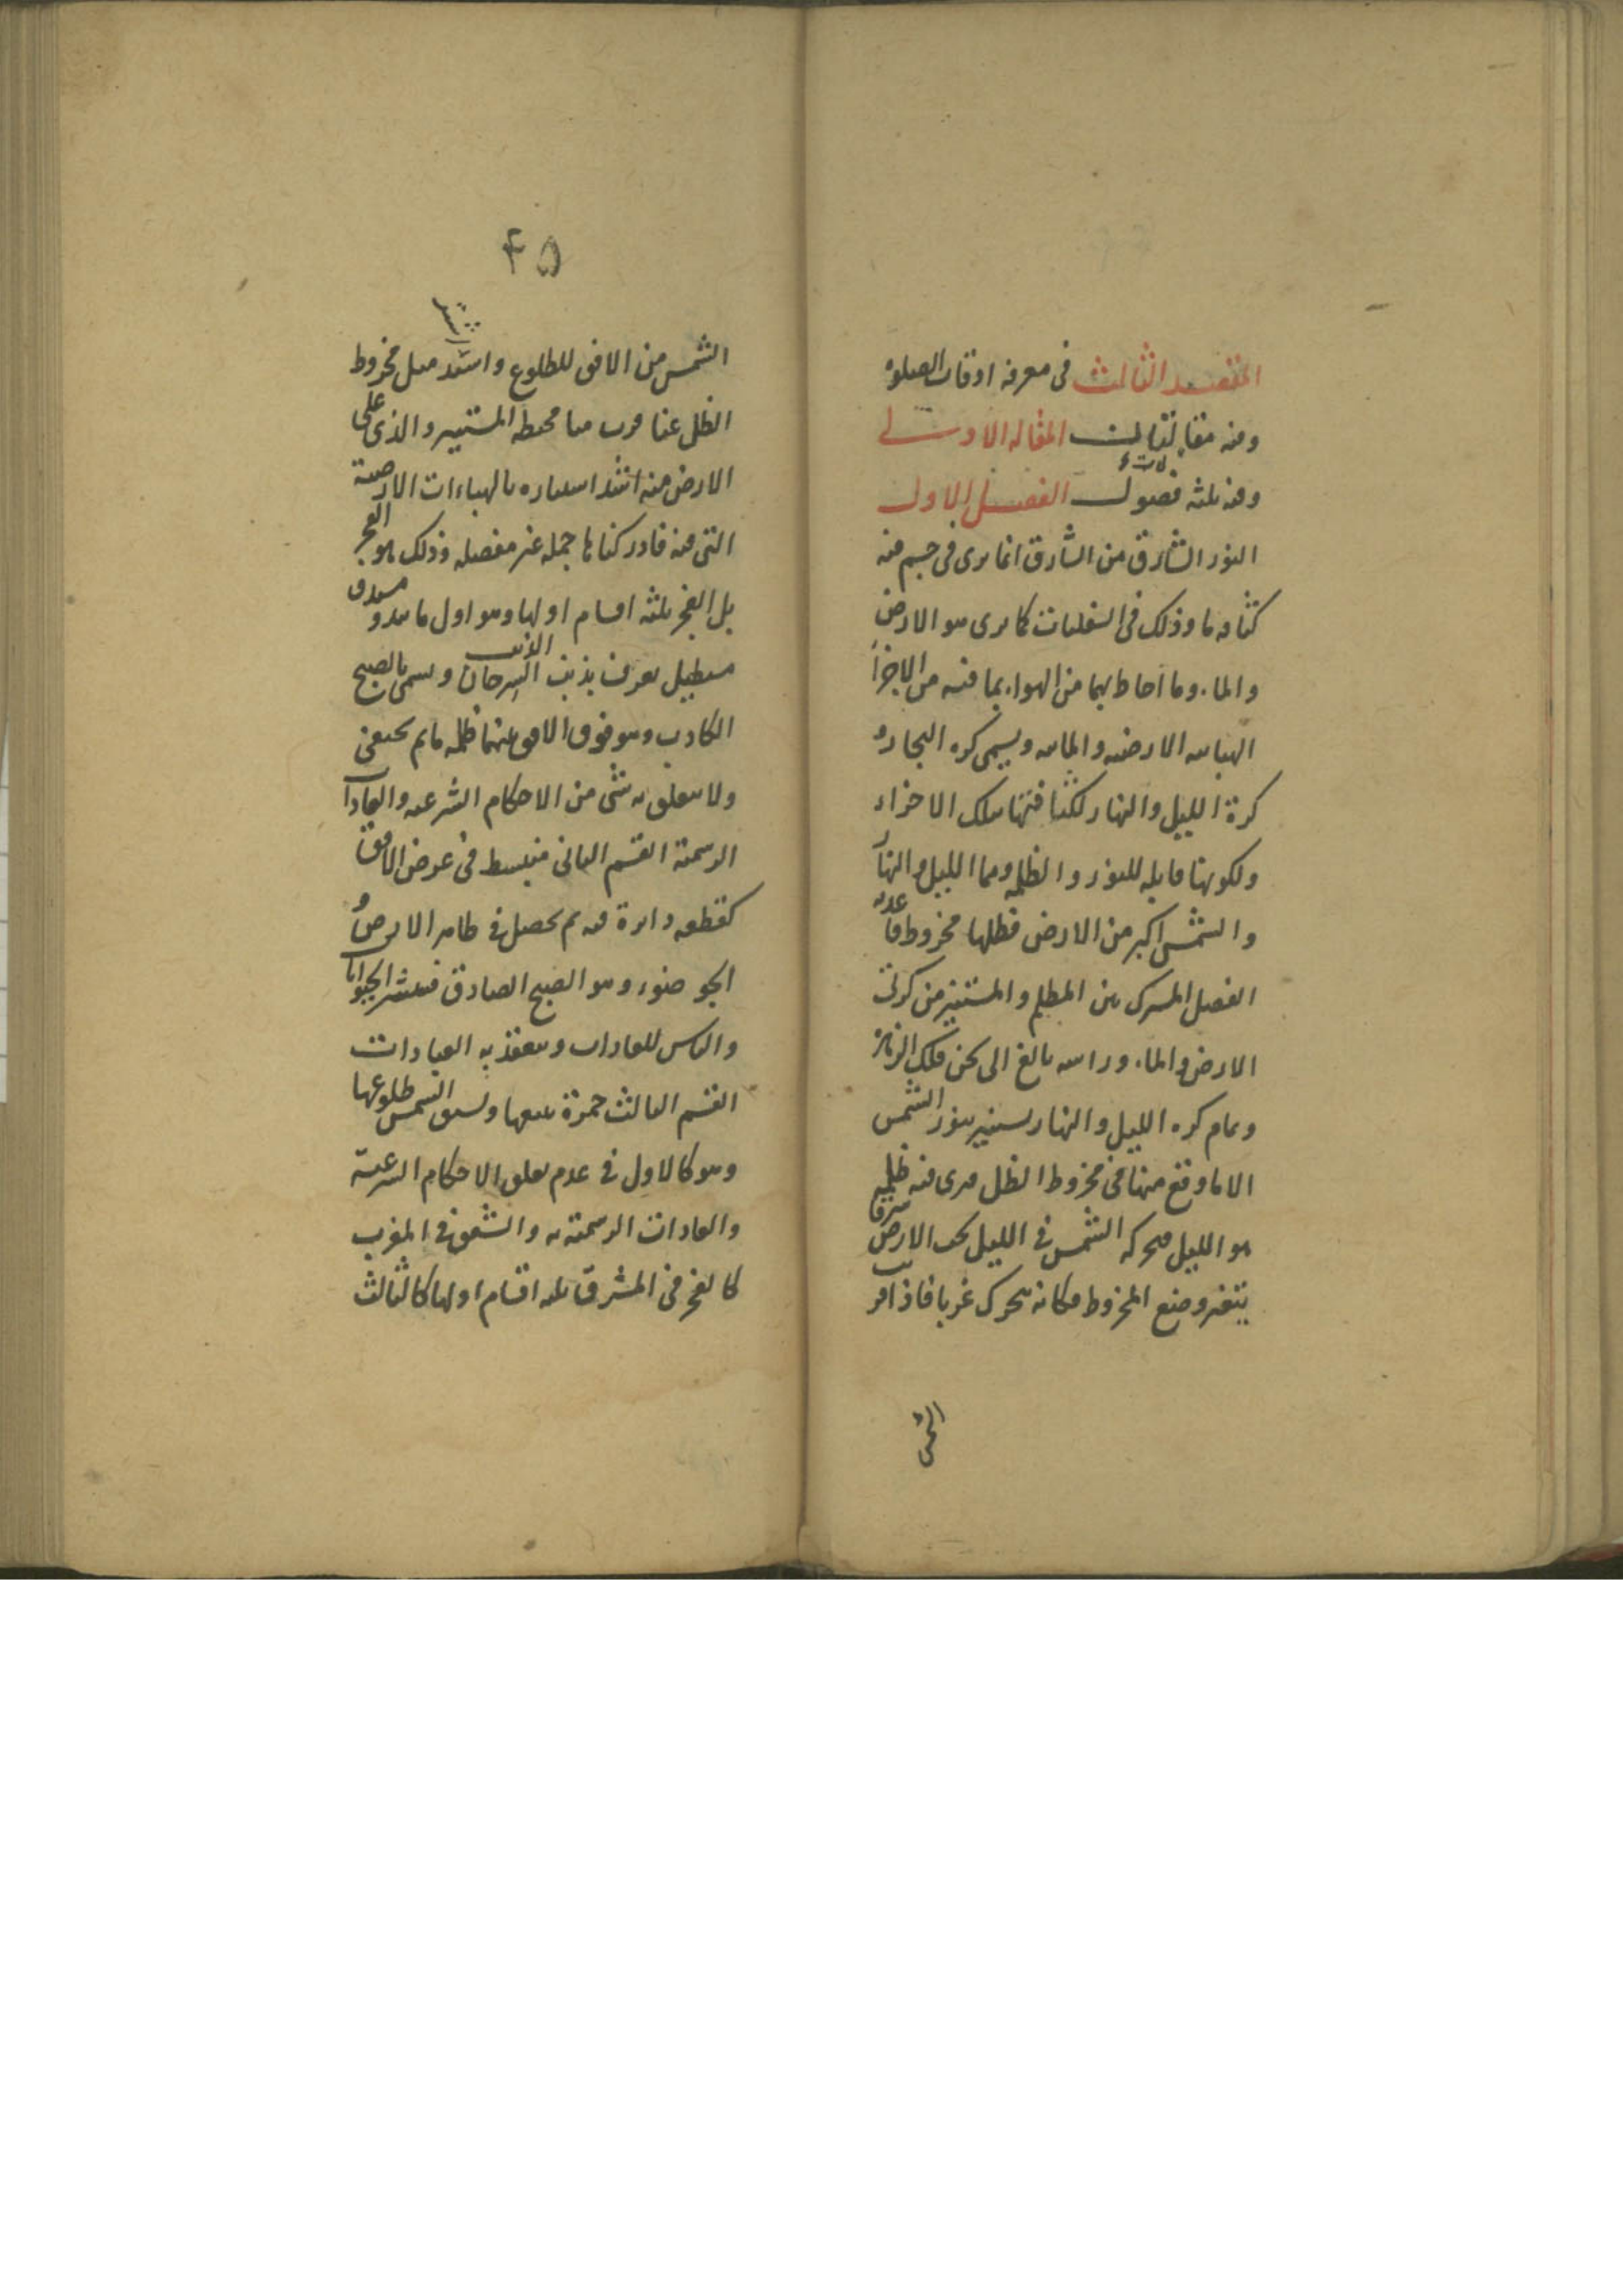 المقصد الثالث فى معرفه اوقات الصلوة
وفيه مقالتان المقاله الاولى
وفيه ثلثه فصول الفصل الاول
النور الشارق من الشارق انما يرى فى جسم فيه
كثافه ما وذلك فى السفليات كما يرى هو الارض
والماء وما احاط بهما من الهواء بما فيه من الاجزا
الهبائيه الارضيه والمائيه ويسمى كره البخار و
كرة الليل والنهار لكثافتها بتلك الاجزاء
ولكونها قابله للنور والظلمه وهما الليل والنهار
والشمس اكبر من الارض فظلها مخروط قاعدته
الفصل المشترك بين المظلم والمستنير من كرتى
الارض والماء وراسه بالغ الى ثخن فلك الزهرة
وتمام كره الليل والنهار يستنير بنور الشمس
الا ما وقع منها فى مخروط الظل فيرى فيه ظلمه
هو الليل فبحركه الشمس فى الليل تحت الارض شرقا
يتغير وضع المخروط فكانه يتحرك غربا فاذا قربت
الشمس
۴۵
الشمس من الافق للطلوع واشتد ميل مخروط
الظل عنا قرب منا محيطه المستنير والذى على
الارض منه اشد استناره بالهباءات الارضية
التى فيه فادركناها جمله غير مفصله وذلك هو الفجر
بل الفجر ثلثه اقسام اولها وهو اول ما يبدو مستدق
مستطيل يعرف بذنب السرحان ويسمى بالصبح
الذئب
الكاذب وهو فوق الافق بينهما ظلمه ما ثم يختفى
ولا يتعلق به شى من الاحكام الشرعيه والعادات
الرسمية القسم الثانى منبسط فى عرض الافق
كقطعه دايرة فيه ثم يحصل فى ظاهر الارض و
الجو ضوء وهو الصبح الصادق فينتشر الحيوانات
والناس للعادات وينعقد به العبادات
القسم الثالث حمرة يتبعها ويسبق الشمس طلوعها
وهو كالاول فى عدم تعلق الاحكام الشرعية
والعادات الرسمية به والشفق فى المغرب
كالفجر فى المشرق ثلثه اقسام اولها كالثالث